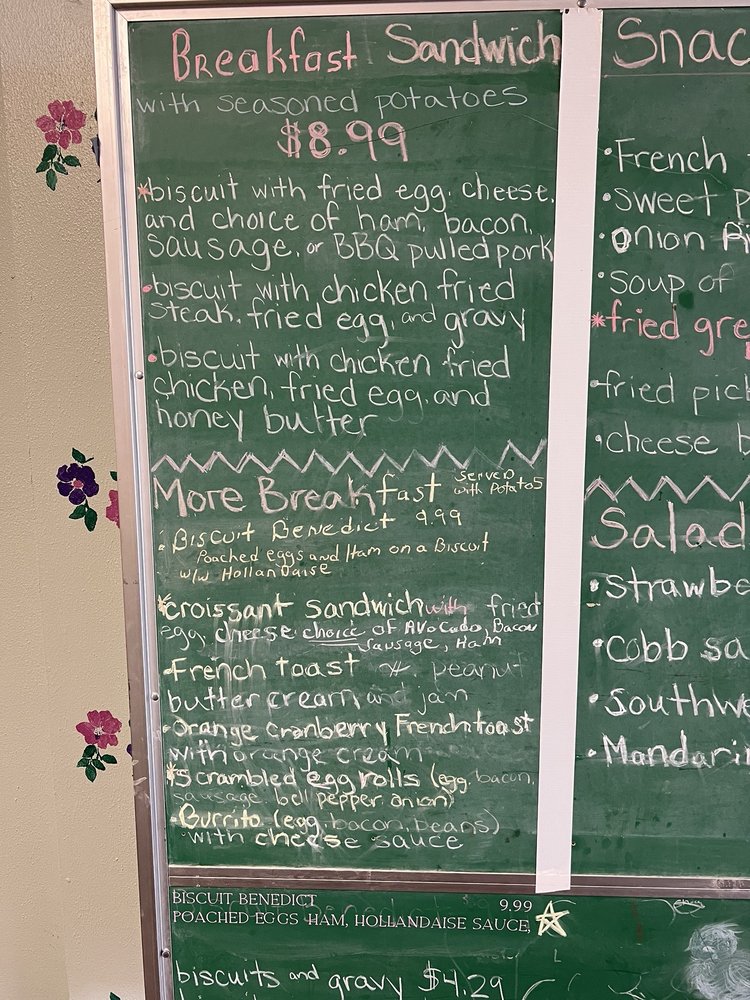 Breakfast Sandwich
with seasoned potatoes
$8.99
*biscuit with fried egg, cheese,
and choice of ham, bacon,
sausage, or BBQ pulled pork
•biscuit with chicken fried
steak, fried egg, and gravy
•biscuit with chicken fried
chicken, fried egg, and
honey butter
More Breakfast Served
with Potatos
• Biscuit Benedict 9.99
Poached eggs and Ham on a Biscuit
w/w Hollandaise
*croissant sandwich with fried
egg, cheese choice of Avocado, Bacon
Sausage, Ham
•French toast w. peanut
butter cream and jam
•Orange cranberry French toast
with orange cream
*Scrambled egg rolls (egg, bacon,
sausage, bell pepper onion)
•Burrito (egg, bacon, beans)
with cheese sauce
BISCUIT BENEDICT 9.99
POACHED EGGS HAM, HOLLANDAISE SAUCE,
biscuits and gravy $4.29
Snac
•French
•sweet p
•onion Ri
•soup of
*fried gre
•fried pick
•cheese b
Salad
•strawbe
•Cobb sa
•Southwe
•Mandarin